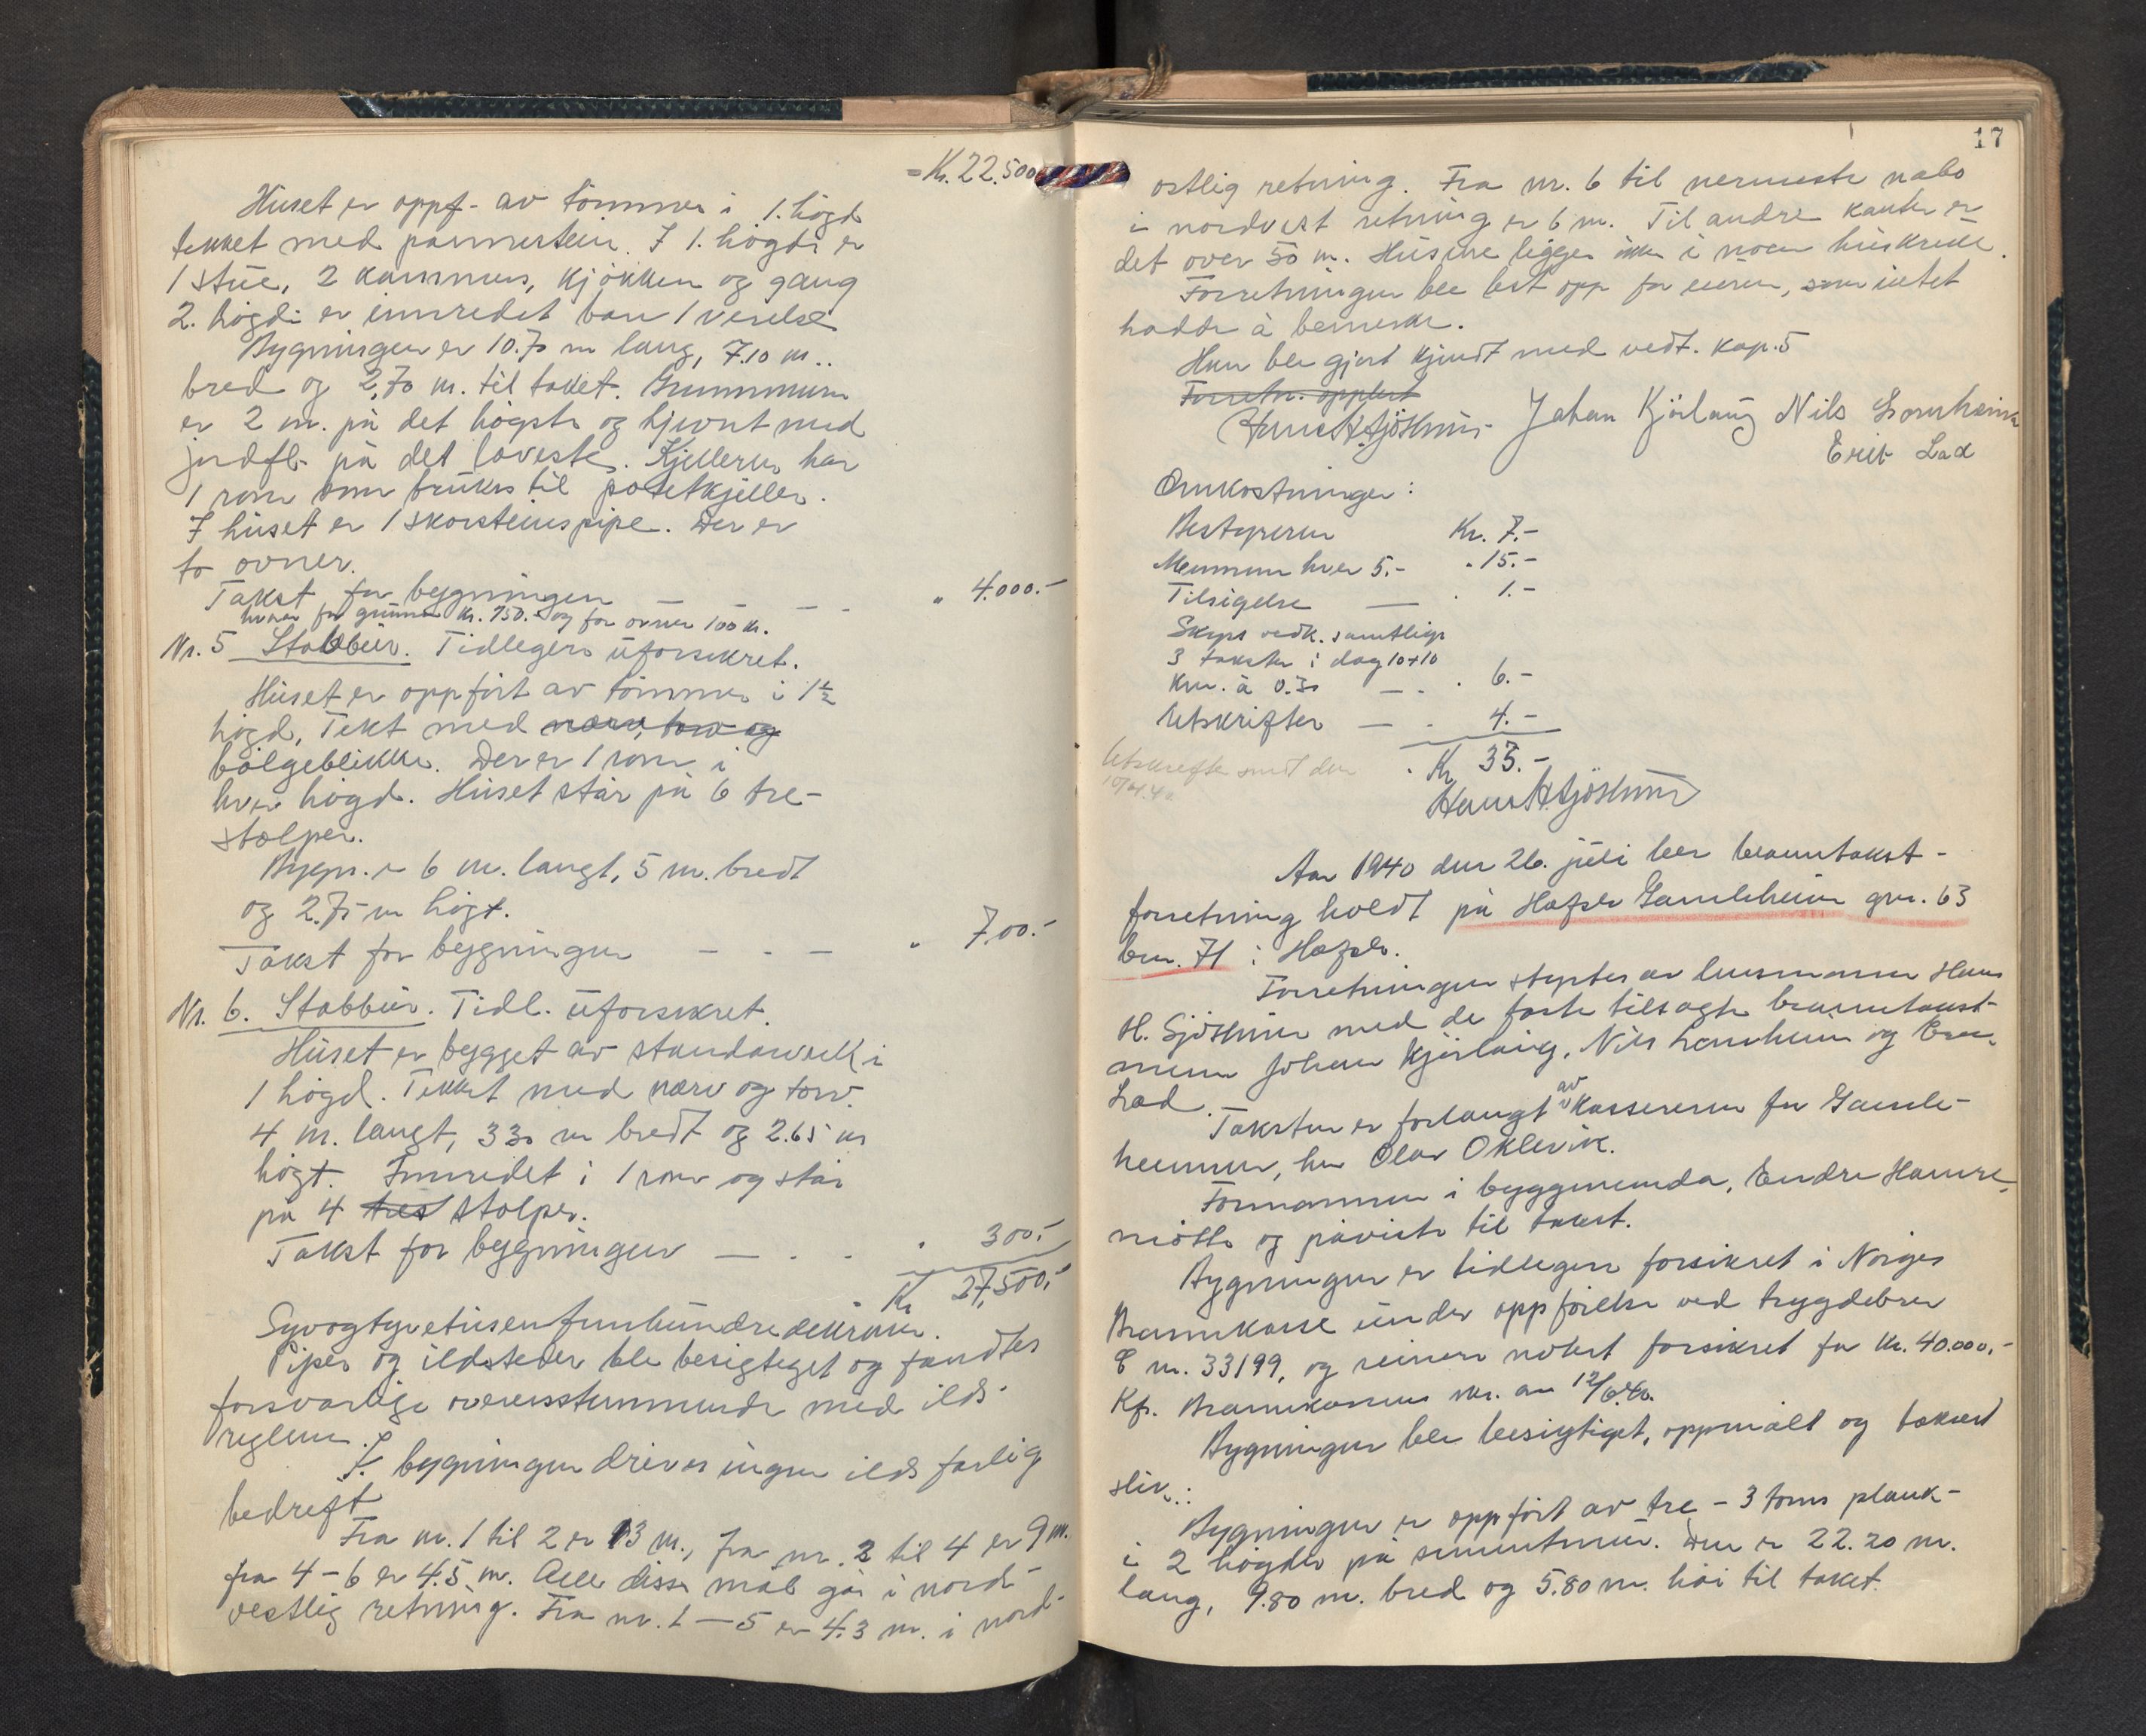 = Kr. 22.500
Huset er oppf. av tömmer i 1. högd
tekket med pannestein. I 1. högdi er
1 stue, 2 kammers, kjökken og gang
2. högdi er innredet bare 1 værelse
Bygningen er 10.70 m lang, 7.10 m..
bred og 2,70 m. til taket. Grunnmuren
er 2 m. på det högste og hjevnt med
jordfl. på det laveste. Kjelleren har
1 rom som brukes til potetkjeller.
I huset er 1 skorsteinspipe. Der er
to ovner.
Takst for bygningen — — - " 4.000.-
herav for grunnen Kr. 750.- og for ovner 100 kr.
Nr. 5 Stabbur. Tidlegere uforsikret.
Huset er oppfört av tömmer i 1½
högd, Tekt med næver, torv og
bölgeblikk. Der er 1 rom i
hver högd. Huset står på 6 tre-
stolper.
Bygn. er 6 m. langt, 5 m. bredt
og 2.75 m högt.
Takst for bygningen — - — " 700.-
Nr. 6. Stabbur. Tidl. uforsikret.
Huset er bygget av standarverk i
1 högd. Tekket med næver og torv.
4 m. langt, 3 30 m bredt og 2.65 m
högt. Innredet i 1 rom og står
på 4 tres stolper.
Takst for bygningen — - - " 300.-
Kr 27,500.-
Syvogtyvetusenfemhundredekroner.
Piper og ildsteder ble besigteget og fandtes
forsvarlige overensstemmende med ilds-
reglene.
I bygningen drives ingen ildsfarlig
bedreft
Fra nr. 1 til 2 er 13 m., fra nr. 2 til 4 er 9 m.
fra 4 - 6 er 4.5 m. Alle disse mål går i nord-
vestlig retning. Fra nr. 1 — 5 er 4.3 m. i nord-
17
ostlig retning. Fra nr. 6 til nermeste nabo
i nordvest retning er 6 m. Til andre kanter er
det over 50 m. Husene ligger ikke i noen huskrede.
Forretningen ble lest opp for eieren, som intet
hadde å bemerke.
Han ble gjort kjendt med vedt. kap. 5
Forretn. opplest
Hans H. Sjöthun Johan Kjörlaug Nils Lornheim
Erik Lad
Omkostninger:
Bestyreren Kr. 7.-
Mennene hver 5.- " 15.-
Tilsigelse — " 1.-
Skyss vedk. samtlige
3 takster i dag 10+10
km. à 0.30 — - " 6.-
Utskrifter — - 4.-
" Kr 33.-
Utskrifter sendt den
10/4.40
Hans H. Sjöthun
Aar 1940 den 26. juli ble branntakst-
forretning holdt på Hafslo Gamleheim gnr. 63
bnr. 71 i Hafslo.
Forretningen styrtes av lensmannen Hans
H. Sjöthun med de faste tilsagte branntakst-
menn Johan Kjörlaug, Nils Lornheim og Erik
Lad.
Taksten er forlangt av kassereren for Gamle-
heimen, hr. Olav Oklevik.
Formannen i byggnemnda, Endre Hamre,
mötte og påviste til takst.
Bygningen er tidlegere forsikret i Norges
Brannkasse under oppförelse ved trygdebrev
E nr. 33199, og seinere notert forsikret for kr. 40.000.-
Kfr. Brannkassens skr. av 12/6.40.
Bygningen ble besigtiget, oppmålt og taksert
slik:
Bygningen er oppfört av tre - 3 toms plank-
i 2 högder på sementmur. Den er 22.20 m.
lang, 9.80 m. bred og 5.80 m. höi til taket.